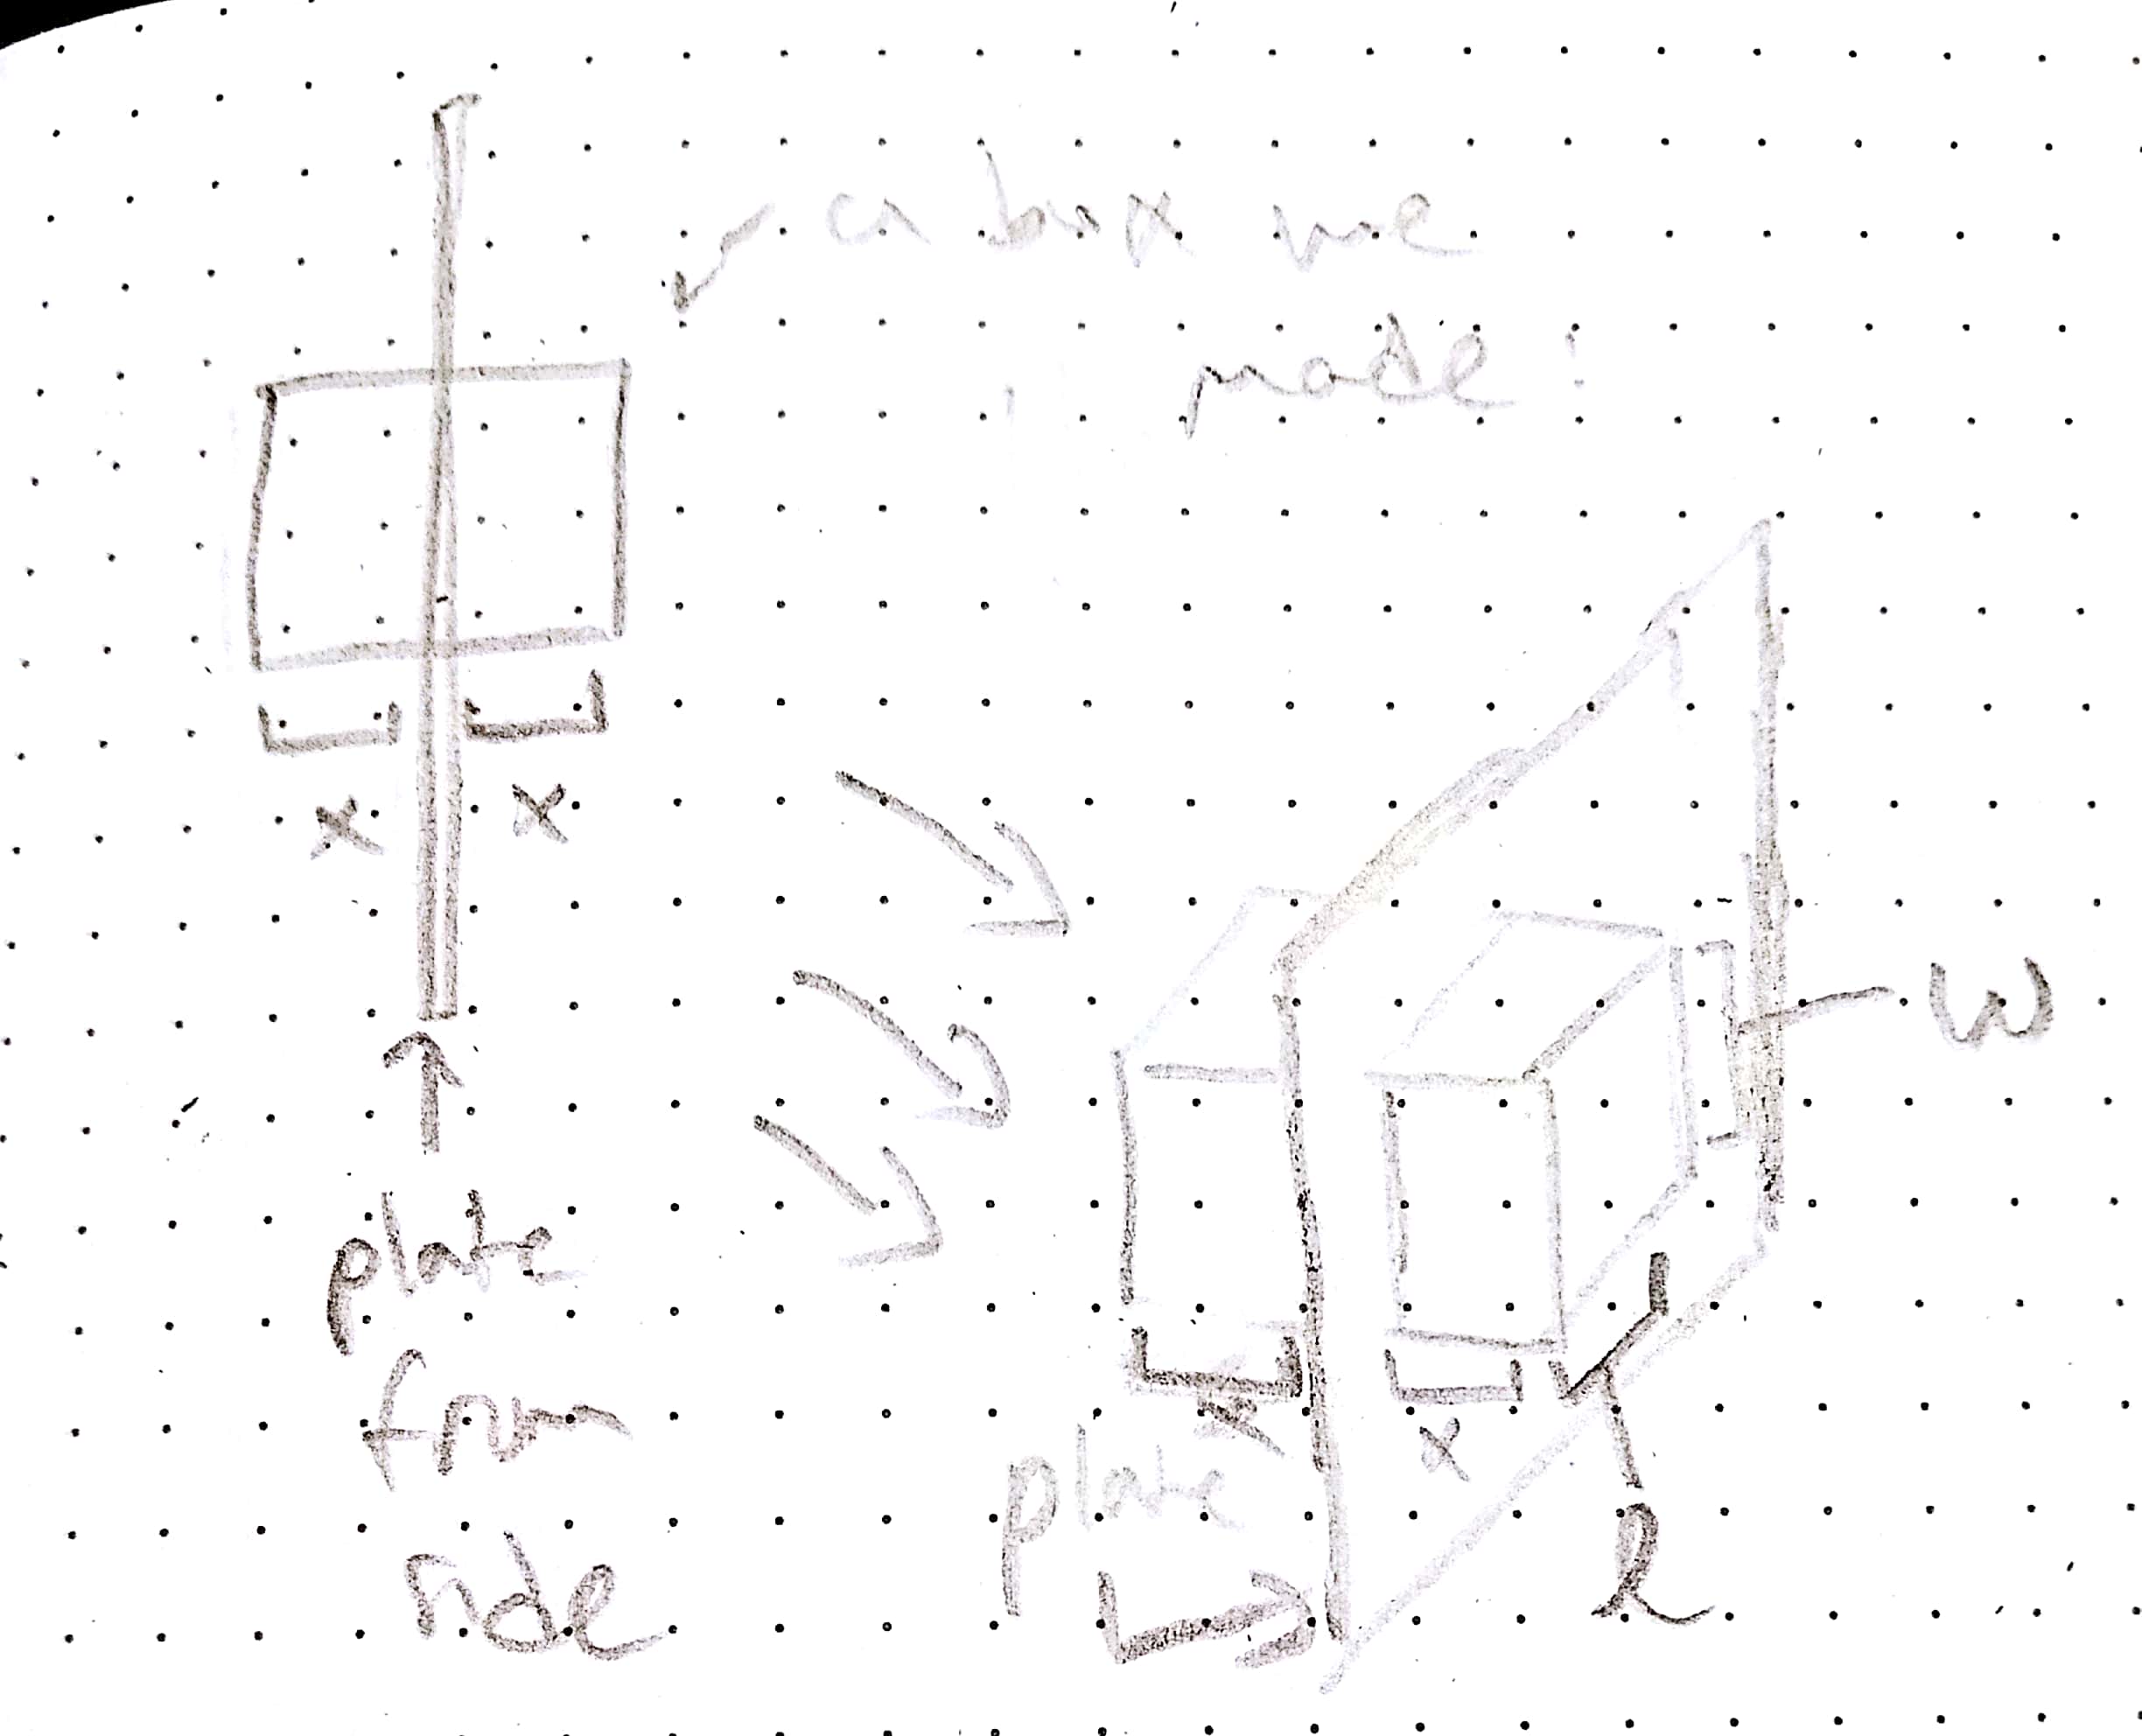 a box we
made!
x
x
plate
from
side
w
x
x
plate
l